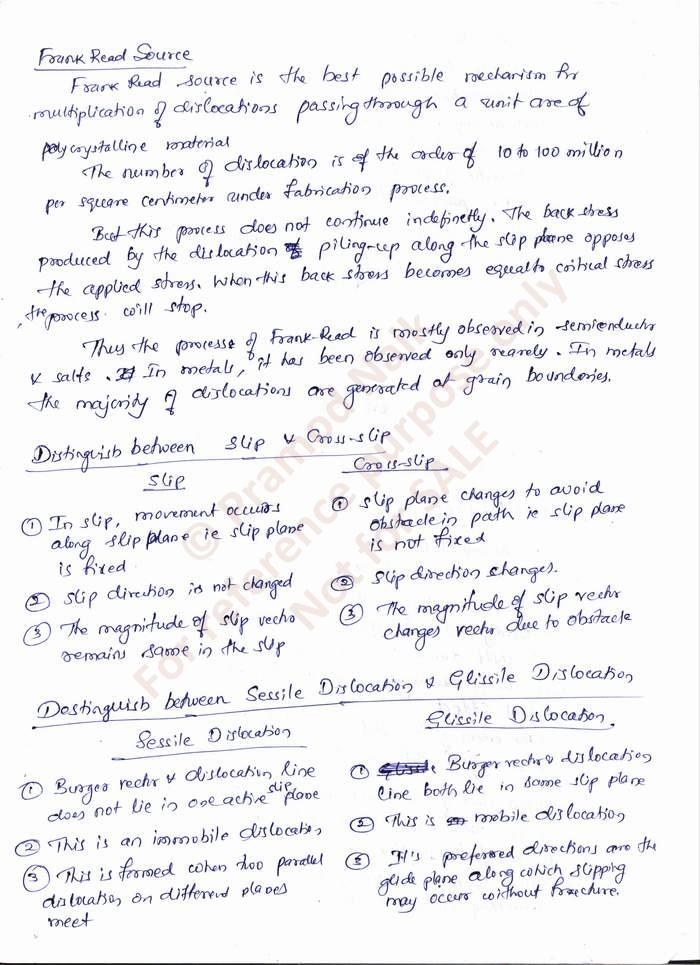 Frank Read Source
Frank Read source is the best possible mechanism for
multiplication of dislocations passing through a unit are of
polycrystalline material
The number of dislocation is of the order of 10 to 100 million
per square centimeter under fabrication process.
But this process does not continue indefinetly. The back stress
produced by the dislocation piling-up along the slip plane opposes
the applied stress. When this back stress becomes equal to critical stress
, the process will stop.
Thus the process of Frank-Read is mostly observed in semiconductr
& salts. In metals, it has been observed only rearely. In metals
the majority of dislocations are generated at grain boundaries.
Distinguish between Slip & Cross-slip
Slip
① In slip, movement occurs
along slip plane ie slip plane
is fixed
② slip direction is not changed
③ The magnitude of slip vector
remains same in the slip
Cross-slip
① slip plane changes to avoid
obstacle in path ie slip plane
is not fixed
② slip direction changes.
③ The magnitude of slip vectr
changes vectr due to obstacle
Dostinguish between Sessile Dislocation & Glissile Dislocation
Sessile Dislocation
① Burger vectr & dislocation line
does not lie in one active slip plane
② This is an immobile dislocation
③ This is formed when too parallel
dislocation on different planes
meet
Glissile Dislocation.
① Burger vectr & dislocation
line both lie in same slip plane
② This is mobile dislocation
③ It's preferred directions are the
glide plane along which slipping
may occur without fracture.
© Pramod Naik
For reference purpose only
Not for SALE